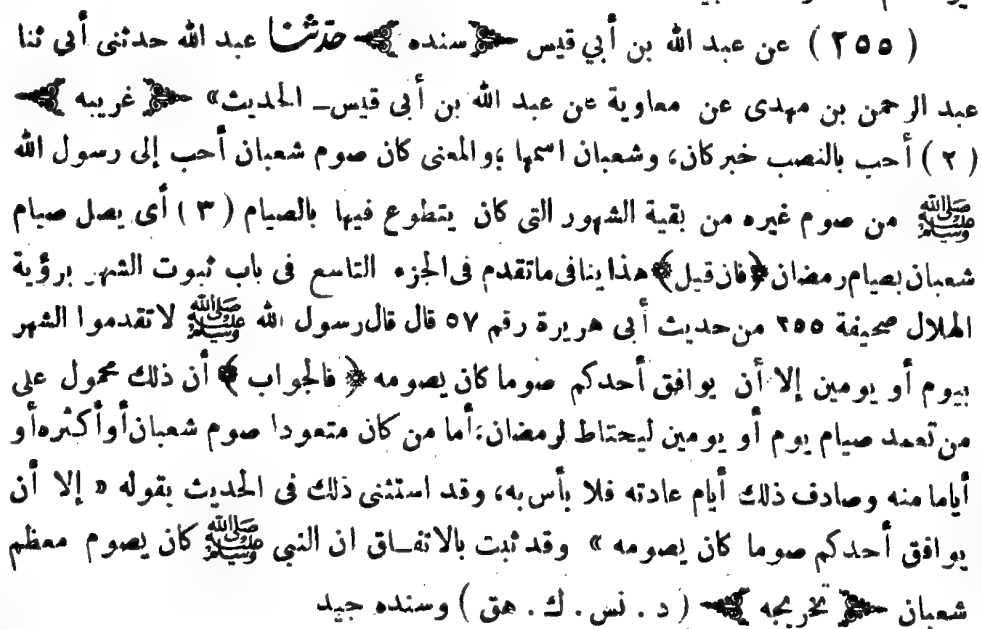 ( ٢٥٥ ) عن عبد الله بن أبي قيس ﴿ سنده ﴾ حدّثنا عبد الله حدثنى أبى ثنا
عبد الرحمن بن مهدى عن معاوية عن عبد الله بن أبى قيس ــ الحديث» ﴿ غريبه ﴾
( ٢ ) أحب بالنصب خبر كان، وشعبان اسمها ؛ والمعنى كان صوم شعبان أحب إلى رسول الله
ﷺ من صوم غيره من بقية الشهور التى كان يتطوع فيها بالصيام ( ٣ ) أى يصل صيام
شعبان بصيام رمضان ﴿ فان قيل ﴾ هذا ينافى ماتقدم فى الجزء التاسع فى باب ثبوت الشهر برؤية
الهلال صحيفة ٢٥٥ من حديث أبى هريرة رقم ٥٧ قال قال رسول الله ﷺ لاتقدموا الشهر
بيوم أو يومين إلا أن يوافق أحدكم صوما كان يصومه ﴿ فالجواب ﴾ أن ذلك محمول على
من تعمد صيام يوم أو يومين ليحتاط لرمضان؛ أما من كان متعودا صوم شعبان أو أكثره أو
أياما منه وصادف ذلك أيام عادته فلا بأس به، وقد استثنى ذلك فى الحديث بقوله « إلا أن
يوافق أحدكم صوما كان يصومه » وقد ثبت بالاتفــاق ان النبي ﷺ كان يصوم معظم
شعبان ﴿ تخريجه ﴾ ( د . نس . ك . هق ) وسنده جيد